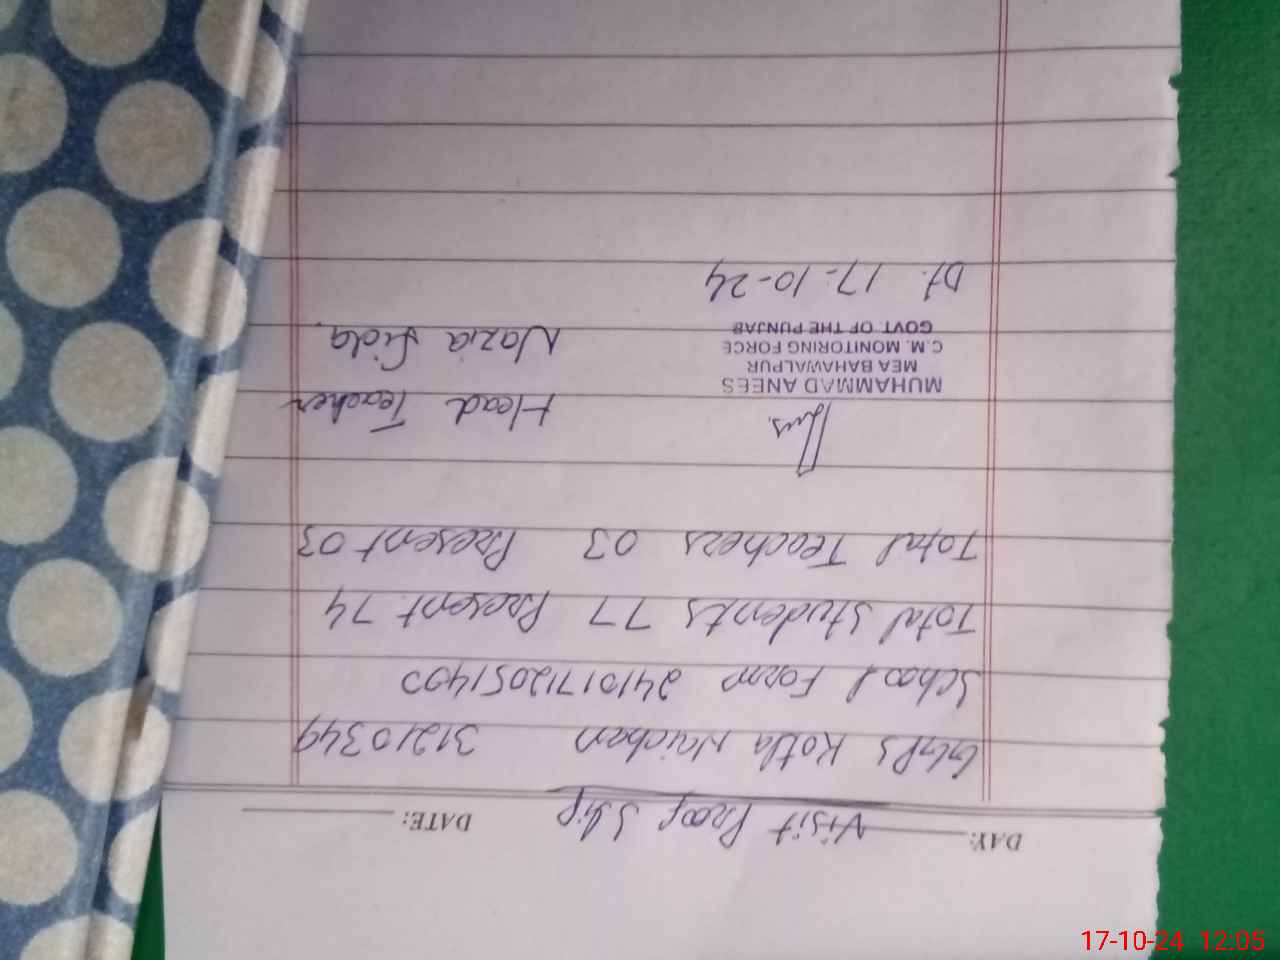 DAY: DATE:
Visit Proof Slip
GGPS Kotla Naichan 31210349
School Form 24101712051400
Total Students 77 Present 74
Total Teachers 03 Present 03
Head Teacher
MUHAMMAD ANEES
MEA BAHAWALPUR
C.M. MONITORING FORCE
GOVT. OF THE PUNJAB
Nazia Fida.
Dt. 17-10-24
17-10-24 12:05